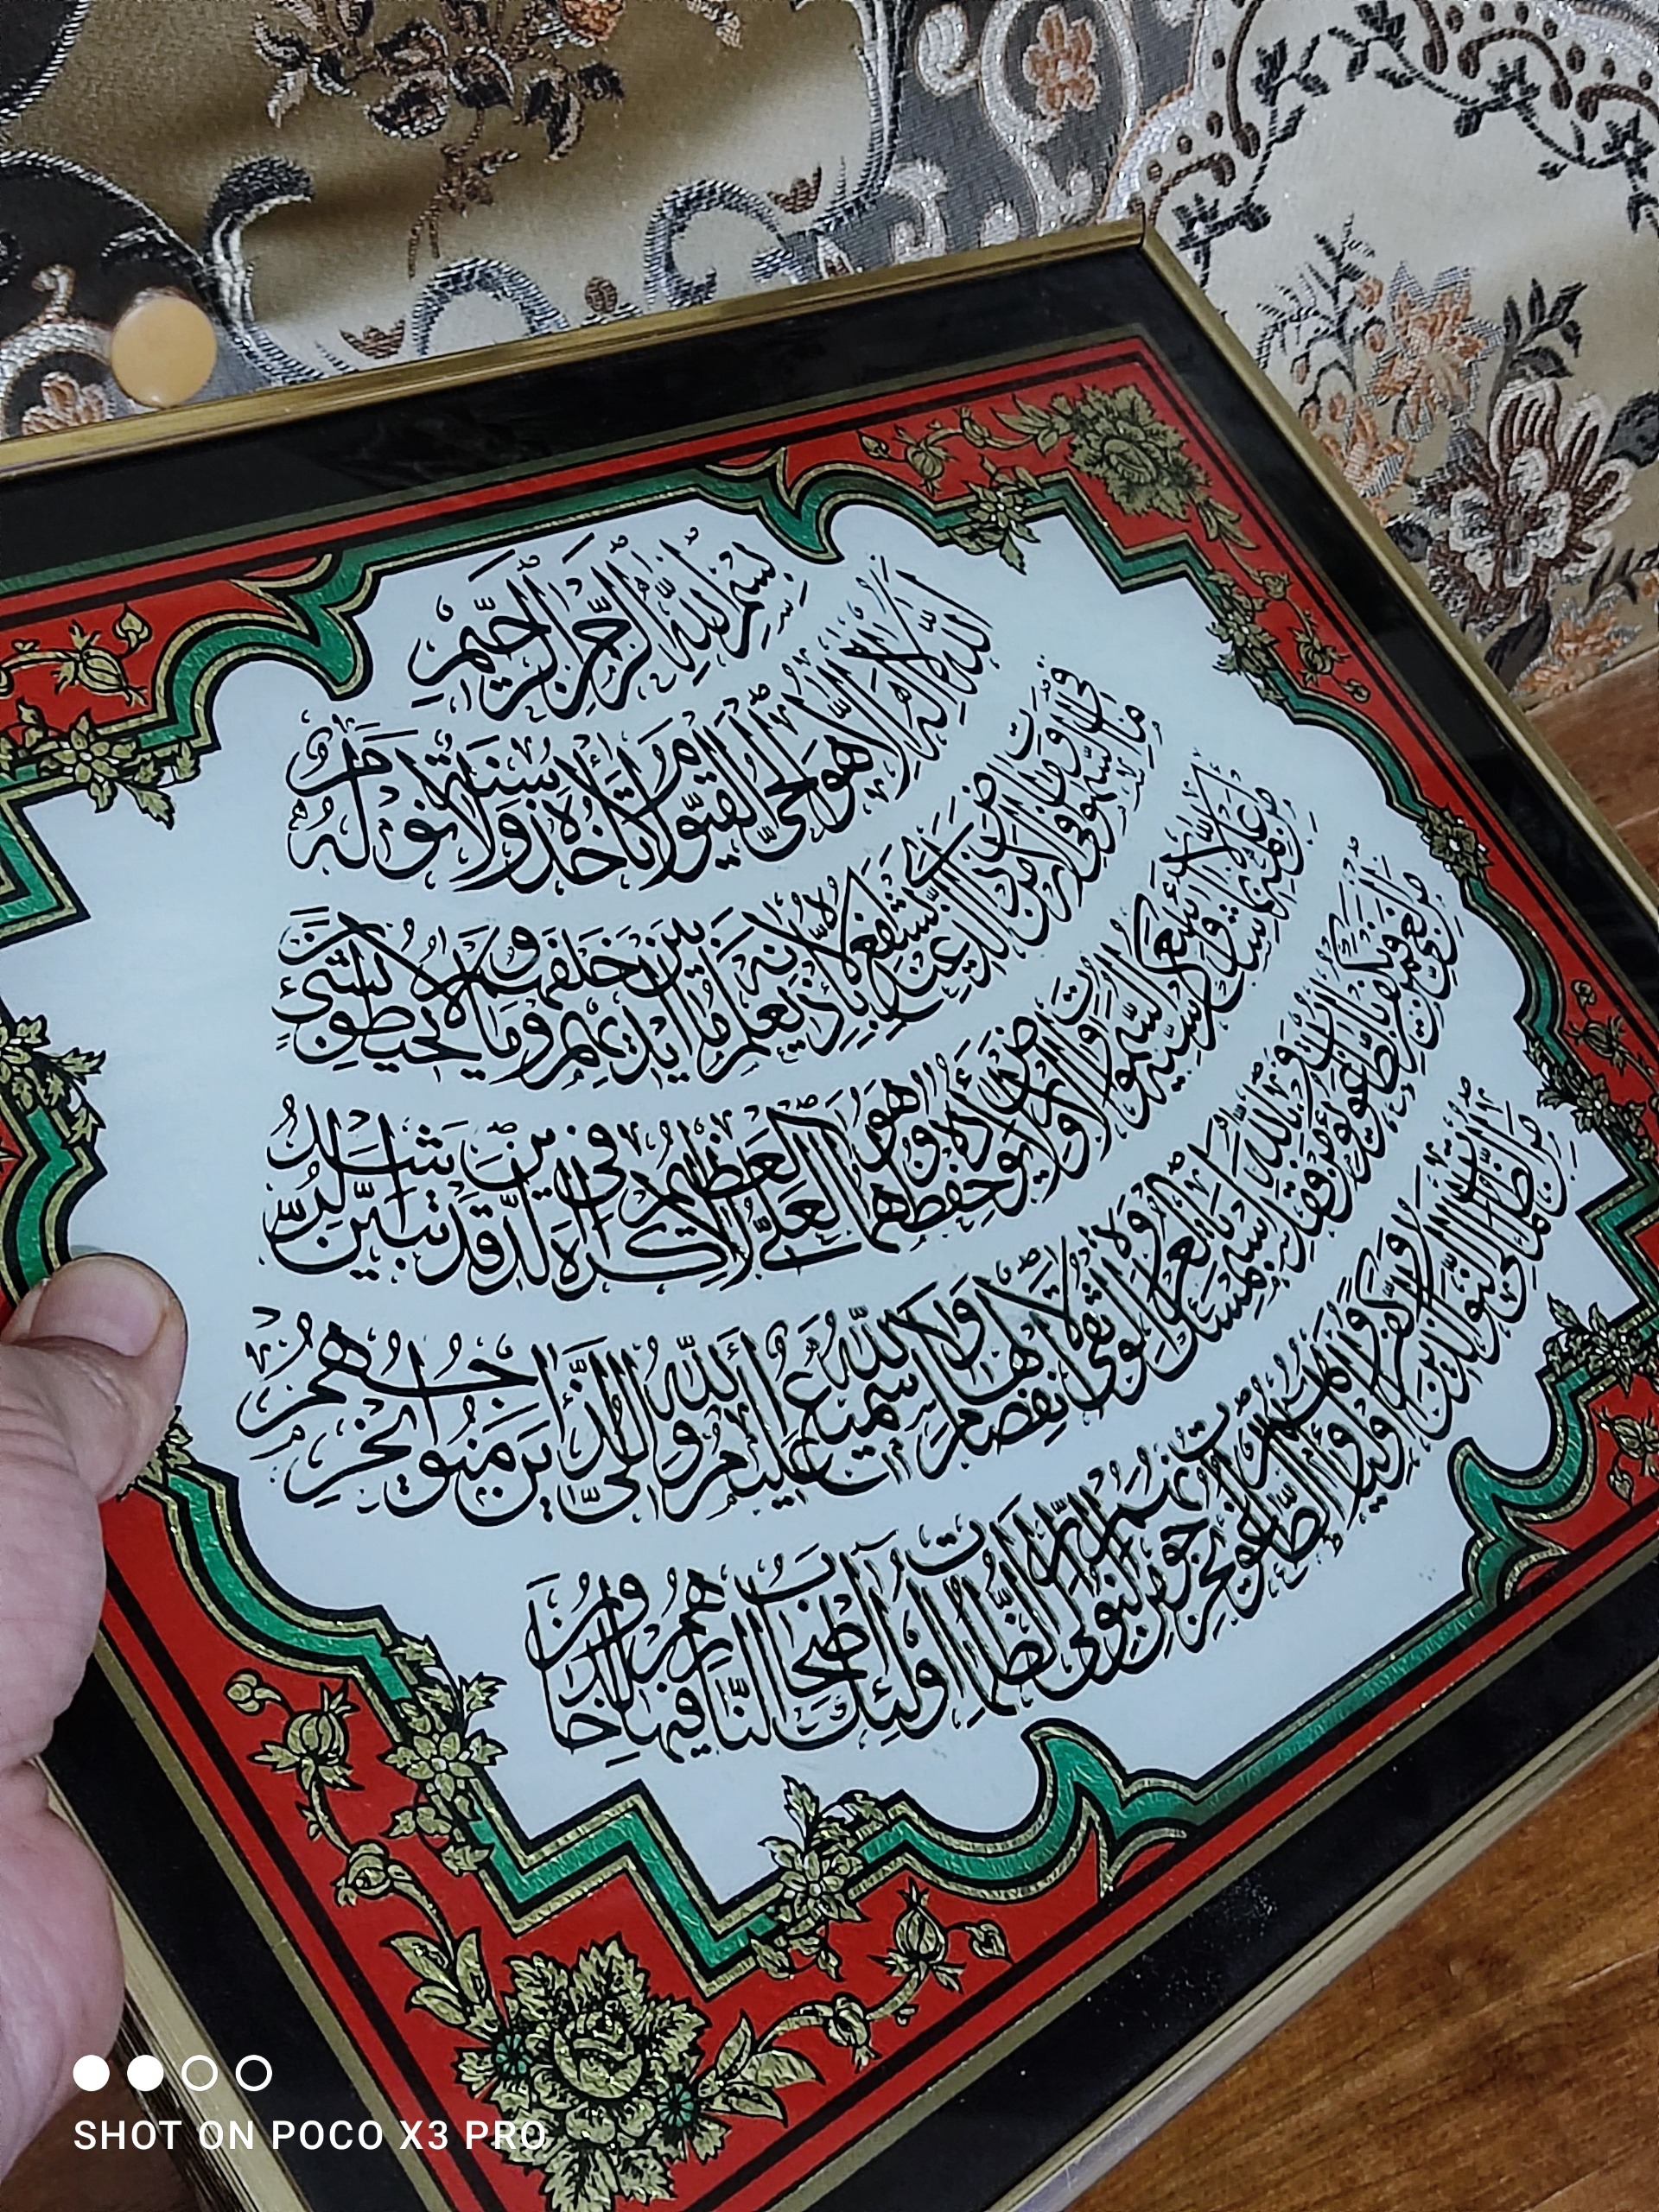 بِسْمِ اللهِ الرَّحْمٰنِ الرَّحِيْمِ
اَللهُ لَا اِلٰهَ اِلَّا هُوَ الْحَىُّ الْقَيُّوْمُ لَا تَأْخُذُهُ سِنَةٌ وَلَا نَوْمٌ لَهُ
مَا فِى السَّمٰوَاتِ وَمَا فِى الْاَرْضِ مَنْ ذَا الَّذِىْ يَشْفَعُ عِنْدَهُ اِلَّا بِاِذْنِهِ يَعْلَمُ مَا بَيْنَ اَيْدِيْهِمْ وَمَا خَلْفَهُمْ وَلَا يُحِيْطُوْنَ بِشَىْءٍ
مِنْ عِلْمِهِ اِلَّا بِمَا شَاءَ وَسِعَ كُرْسِيُّهُ السَّمٰوَاتِ وَالْاَرْضَ وَلَا يَؤُدُهُ حِفْظُهُمَا وَهُوَ الْعَلِىُّ الْعَظِيْمُ لَا اِكْرَاهَ فِى الدِّيْنِ قَدْ تَبَيَّنَ الرُّشْدُ
مِنَ الْغَىِّ فَمَنْ يَكْفُرْ بِالطَّاغُوْتِ وَيُؤْمِنْ بِاللهِ فَقَدِ اسْتَمْسَكَ بِالْعُرْوَةِ الْوُثْقٰى لَا انْفِصَامَ لَهَا وَاللهُ سَمِيْعٌ عَلِيْمٌ اَللهُ وَلِىُّ الَّذِيْنَ اٰمَنُوْا يُخْرِجُهُمْ
مِنَ الظُّلُمَاتِ اِلَى النُّوْرِ وَالَّذِيْنَ كَفَرُوْا اَوْلِيَاؤُهُمُ الطَّاغُوْتُ يُخْرِجُوْنَهُمْ مِنَ النُّوْرِ اِلَى الظُّلُمَاتِ اُولٰئِكَ اَصْحَابُ النَّارِ هُمْ فِيْهَا خَالِدُوْنَ
SHOT ON POCO X3 PRO